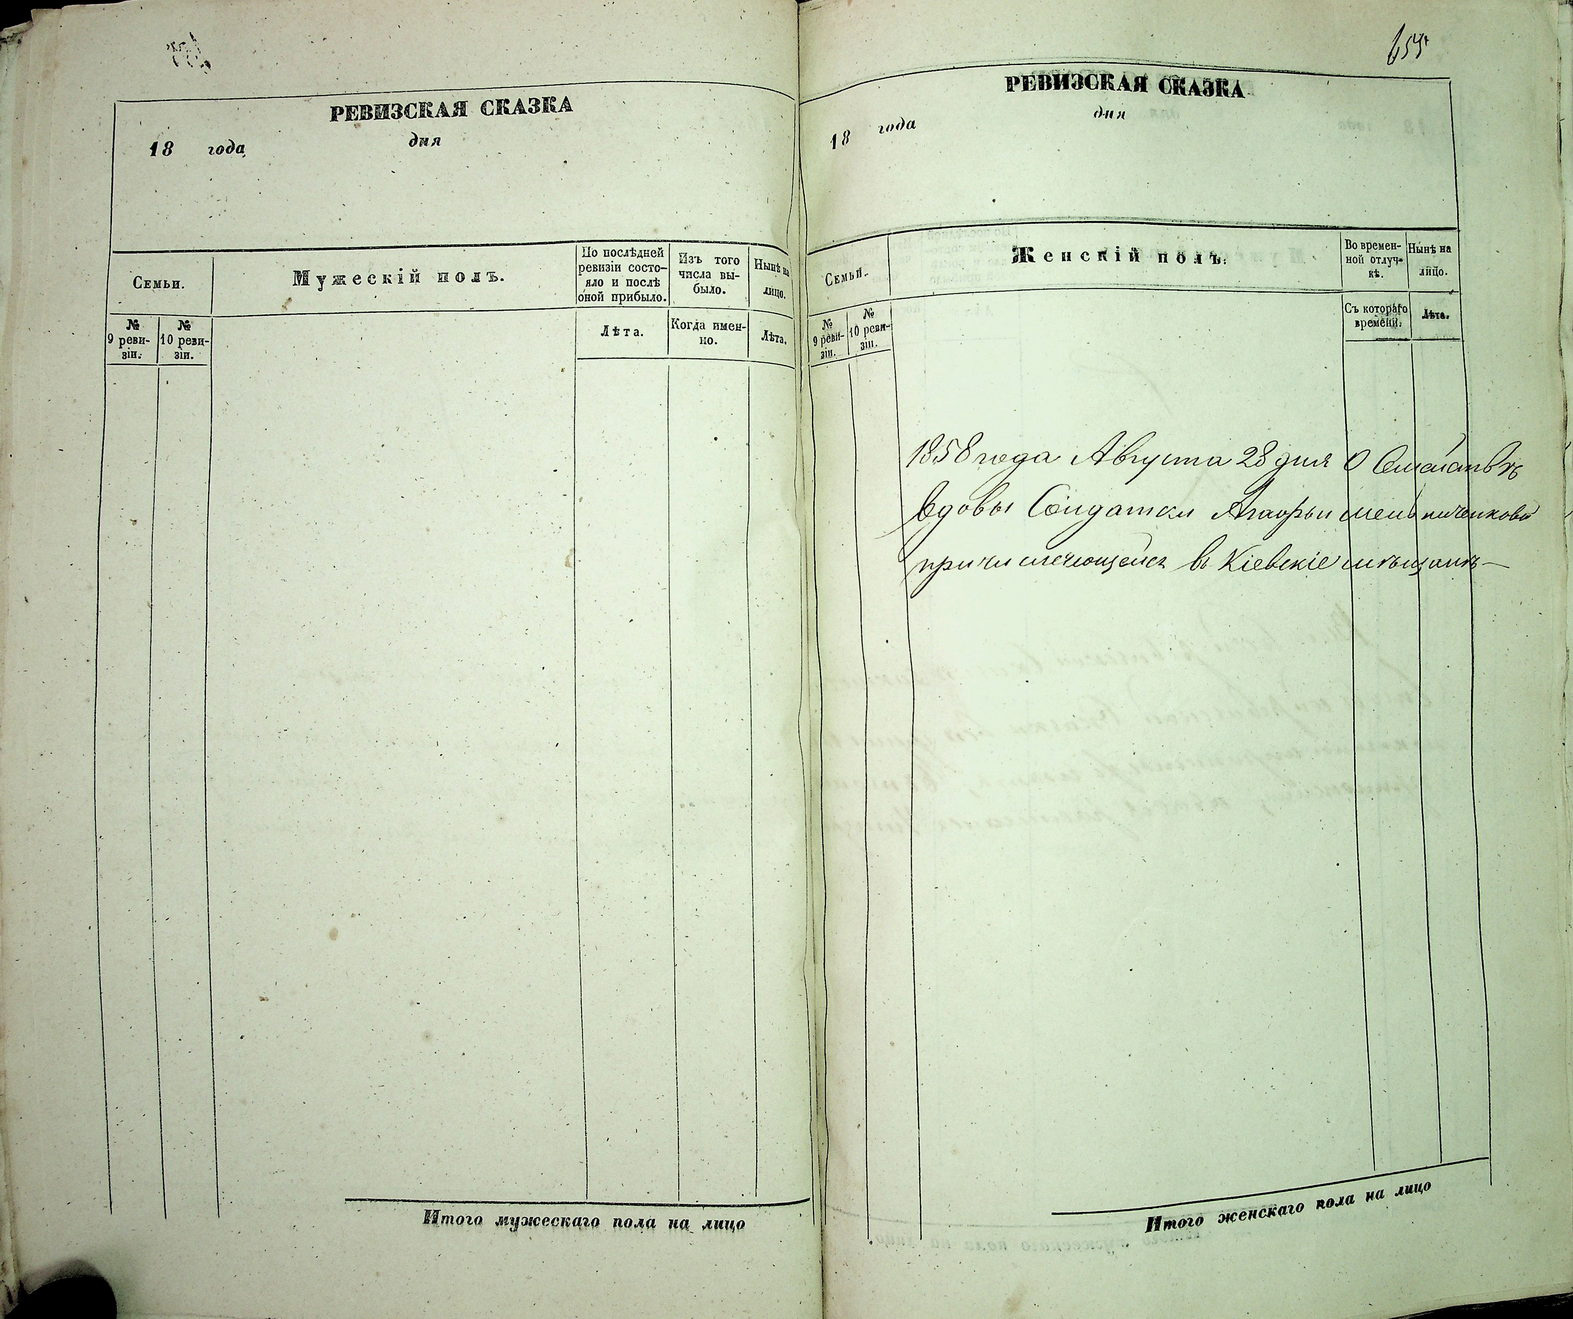 РЕВИЗСКАЯ СКАЗКА
18 года дня
Семьи.
Мужескій полъ.
По послѣдней ревизіи состояло и послѣ оной прибыло.
Изъ того числа выбыло.
Нынѣ на лицо.
№ 9 ревизіи.
№ 10 ревизіи.
Лѣта.
Когда именно.
Лѣта.
Итого мужескаго пола на лицо
655
РЕВИЗСКАЯ СКАЗКА
18 года дня
Семьи.
Женскій полъ.
Во временной отлучкѣ.
Нынѣ на лицо.
№ 9 ревизіи.
№ 10 ревизіи.
Съ котораго времени.
Лѣта.
1858 года Августа 28 дня О Семействѣ
вдовы Солдатки
причисляющейся въ Кіевскіе мѣщане
Итого женскаго пола на лицо